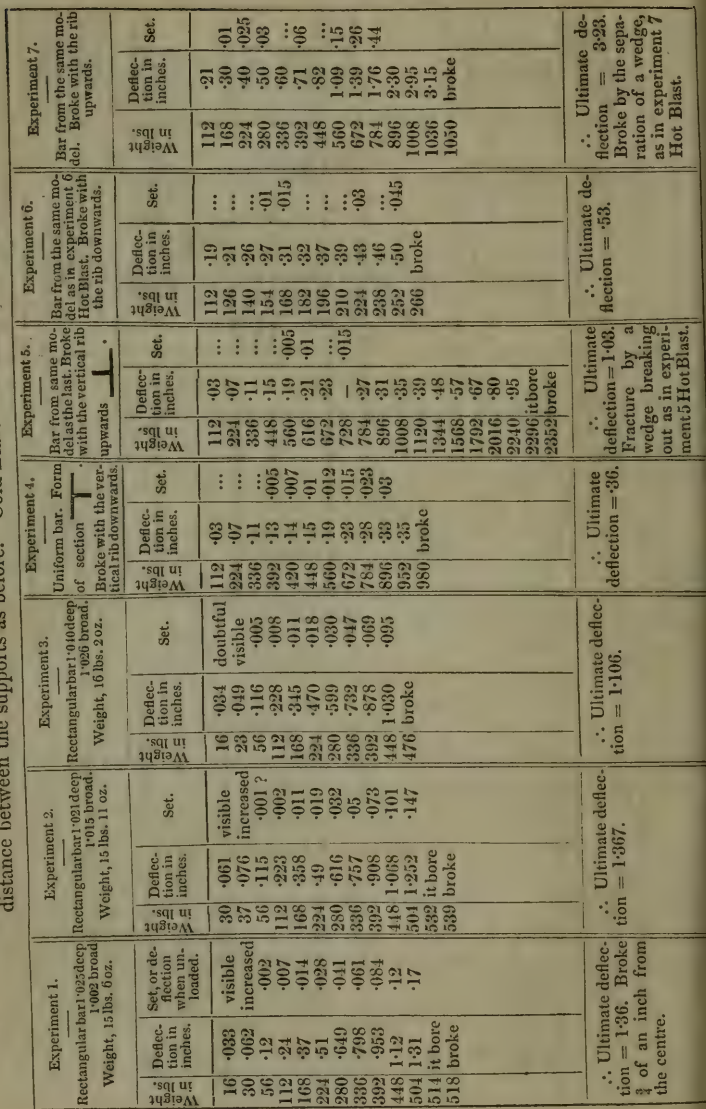 distance between the supports as before.
Experiment 1.
Rectangular bar 1·025 deep
1·002 broad
Weight, 15 lbs. 6 oz.
Weight in lbs. Deflection in inches. Set, or deflection when unloaded.
16 ·033 visible
30 ·062 increased
56 ·12 ·002
112 ·24 ·007
168 ·37 ·014
224 ·51 ·028
280 ·649 ·041
336 ·798 ·061
392 ·953 ·084
448 1·12 ·12
504 1·31 ·17
514 it bore
518 broke
∴ Ultimate deflec-
tion = 1·36. Broke
¾ of an inch from
the centre.
Experiment 2.
Rectangular bar 1·021 deep
1·015 broad.
Weight, 15 lbs. 11 oz.
Weight in lbs. Deflection in inches. Set.
30 ·061 visible
37 ·076 increased
56 ·115 ·001 ?
112 ·223 ·002
168 ·358 ·011
224 ·49 ·019
280 ·616 ·032
336 ·757 ·05
392 ·908 ·073
448 1·068 ·101
504 1·252 ·147
532 it bore
539 broke
∴ Ultimate deflec-
tion = 1·367.
Experiment 3.
Rectangular bar 1·040 deep
1·026 broad.
Weight, 16 lbs. 2 oz.
Weight in lbs. Deflection in inches. Set.
16 ·034 doubtful
23 ·049 visible
56 ·116 ·005
112 ·228 ·008
168 ·345 ·011
224 ·470 ·018
280 ·599 ·030
336 ·732 ·047
392 ·878 ·069
448 1·030 ·095
476 broke
∴ Ultimate deflec-
tion = 1·106.
Experiment 4.
Uniform bar. Form
of section .
Broke with the ver-
tical rib downwards.
Weight in lbs. Deflection in inches. Set.
112 ·03 ...
224 ·07 ...
336 ·11 ...
392 ·13 ·005
420 ·14 ·007
448 ·15 ·01
560 ·19 ·012
672 ·23 ·015
784 ·28 ·023
896 ·33 ·03
952 ·35
980 broke
∴ Ultimate
deflection = ·36.
Experiment 5.
Bar from same mo-
del as the last. Broke
with the vertical rib
upwards .
Weight in lbs. Deflection in inches. Set.
112 ·03 ...
224 ·07 ...
336 ·11 ...
448 ·15 ...
560 ·19 ·005
616 ·21 ·01
672 ·23 ...
728 – ·015
784 ·27
896 ·31
1008 ·35
1120 ·39
1344 ·48
1568 ·57
1792 ·67
2016 ·80
2240 ·95
2296 it bore
2352 broke
∴ Ultimate
deflection = 1·03.
Fracture by a
wedge breaking
out as in experi-
ment 5 Hot Blast.
Experiment 6.
Bar from the same mo-
del as in experiment 6
Hot Blast. Broke with
the rib downwards.
Weight in lbs. Deflection in inches. Set.
112 ·19 ...
126 ·21 ...
140 ·26 ...
154 ·27 ·01
168 ·31 ·015
182 ·32 ...
196 ·37 ...
210 ·39 ...
224 ·43 ·03
238 ·46 ...
252 ·50 ·045
266 broke
∴ Ultimate de-
flection = ·53.
Experiment 7.
Bar from the same mo-
del. Broke with the rib
upwards.
Weight in lbs. Deflection in inches. Set.
112 ·21
168 ·30 ·01
224 ·40 ·025
280 ·50 ·03
336 ·60 ...
392 ·71 ·06
448 ·82 ...
560 1·09 ·15
672 1·39 ·26
784 1·76 ·44
896 2·30
1008 2·95
1036 3·15
1050 broke
∴ Ultimate de-
flection = 3·23.
Broke by the sepa-
ration of a wedge,
as in experiment 7
Hot Blast.